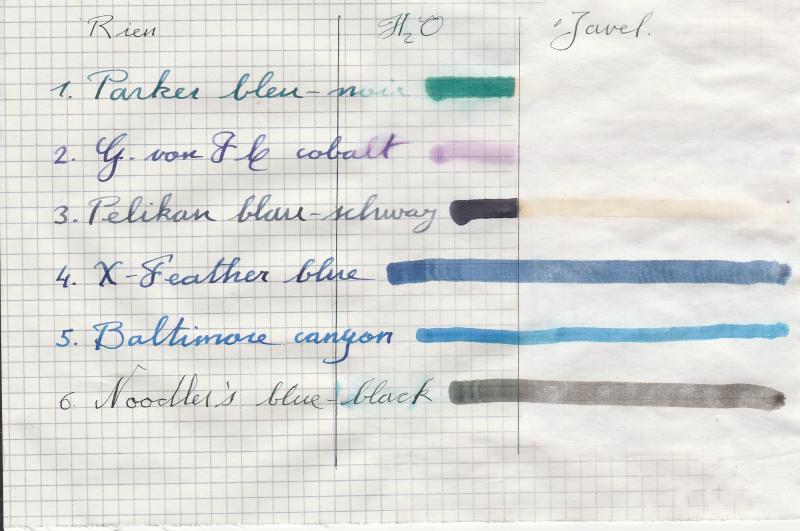 Rien H₂O Javel.
1. Parker bleu-noir
2. G. von F C cobalt
3. Pelikan blau-schwaz
4. X-Feather blue
5. Baltimore canyon
6. Noodler's blue-black